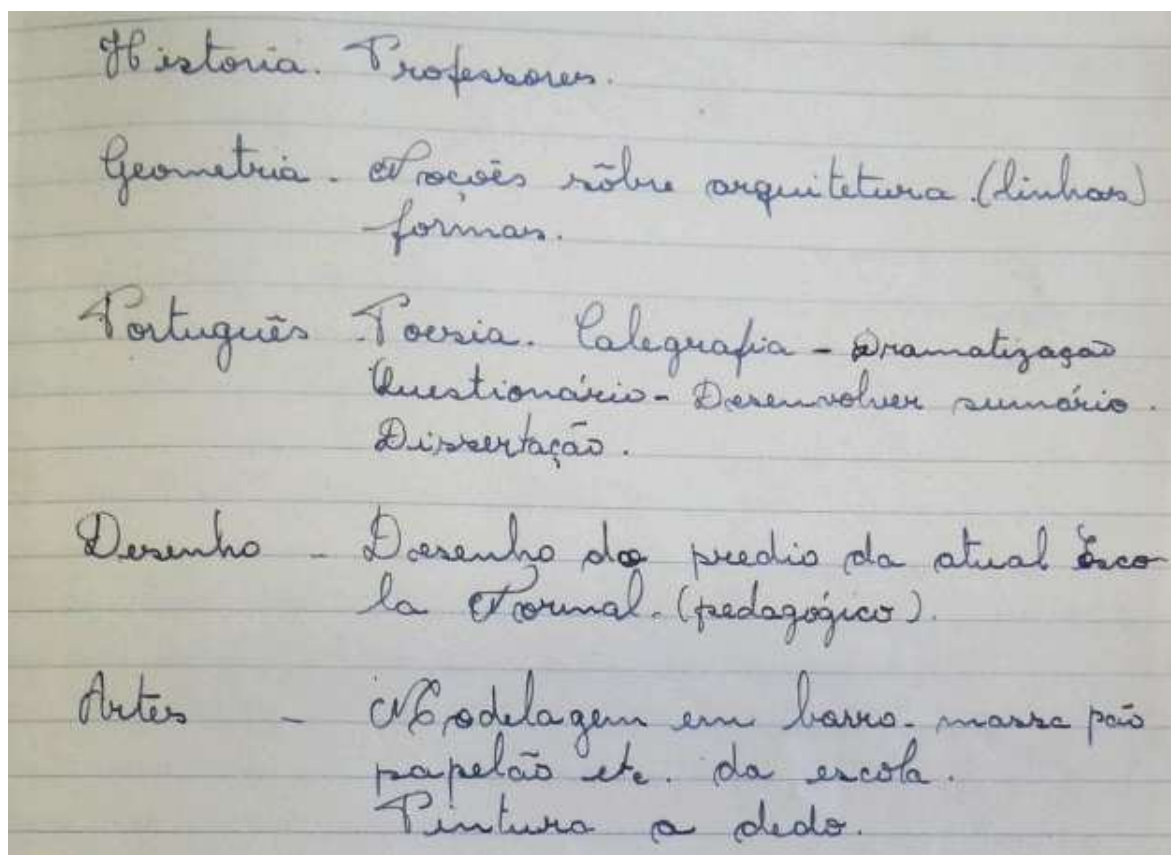 Historia. Professores.
Geometria - Noções sôbre arquitetura. (linhas)
formas.
Português - Poesia. Calegrafia - Dramatizaçao
Questionário - Desenvolver sumário.
Dissertação.
Desenho - Desenho do predio da atual Esco-
la Normal. (pedagógico).
Artes - Modelagem em barro - massa pão
papelão etc. da escola.
Pintura a dedo.